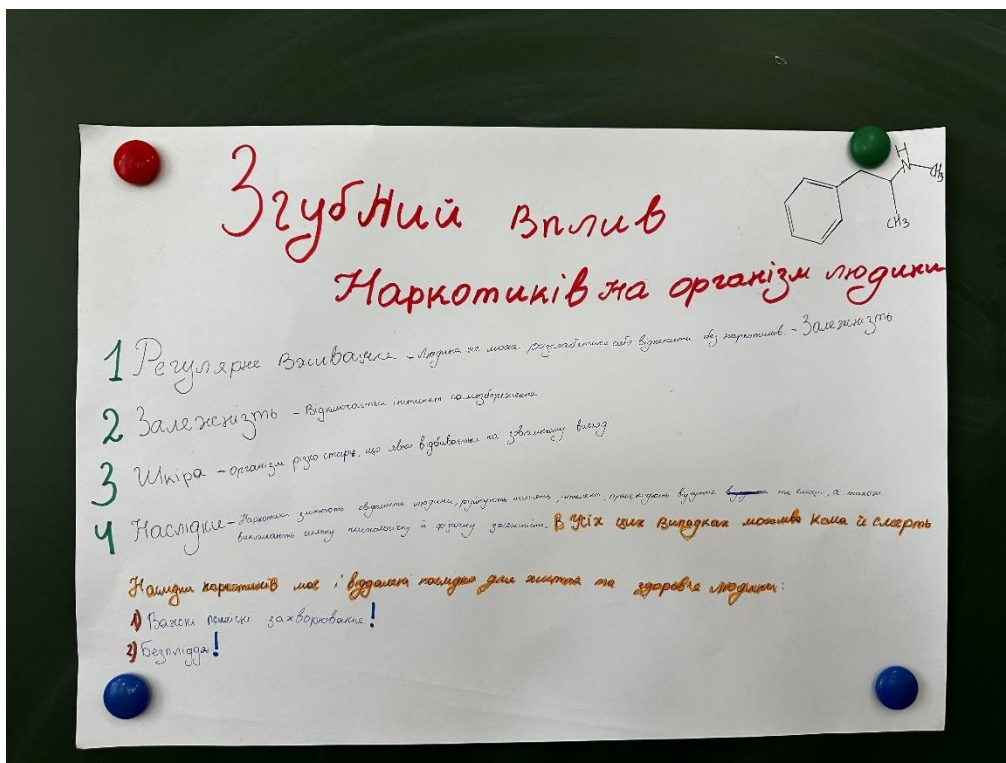 Згубний вплив
Наркотиків на організм людини
H
N
CH3
CH3
1 Регулярне Вживання - Людина не може розслабитися або відпочити без наркотиків. - Залежнізть
2 Залежнізть - Відключається інстинкт самозбереження
3 Шкіра - організм різко старіє, що явно відбивається на зовнішньому вигляді
4 Наслідки - Наркотики змінюють свідомість людини, руйнують пам'ять, інтелект, почуття та емоції, а також
викликають сильну психологічну й фізичну залежність. В Усіх цих Випадках можлива Кома й смерть
Наслідки наркотиків має і віддалені наслідки для життя та здоров'я людини:
1) Важкі психічні захворювання!
2) Безпліддя!